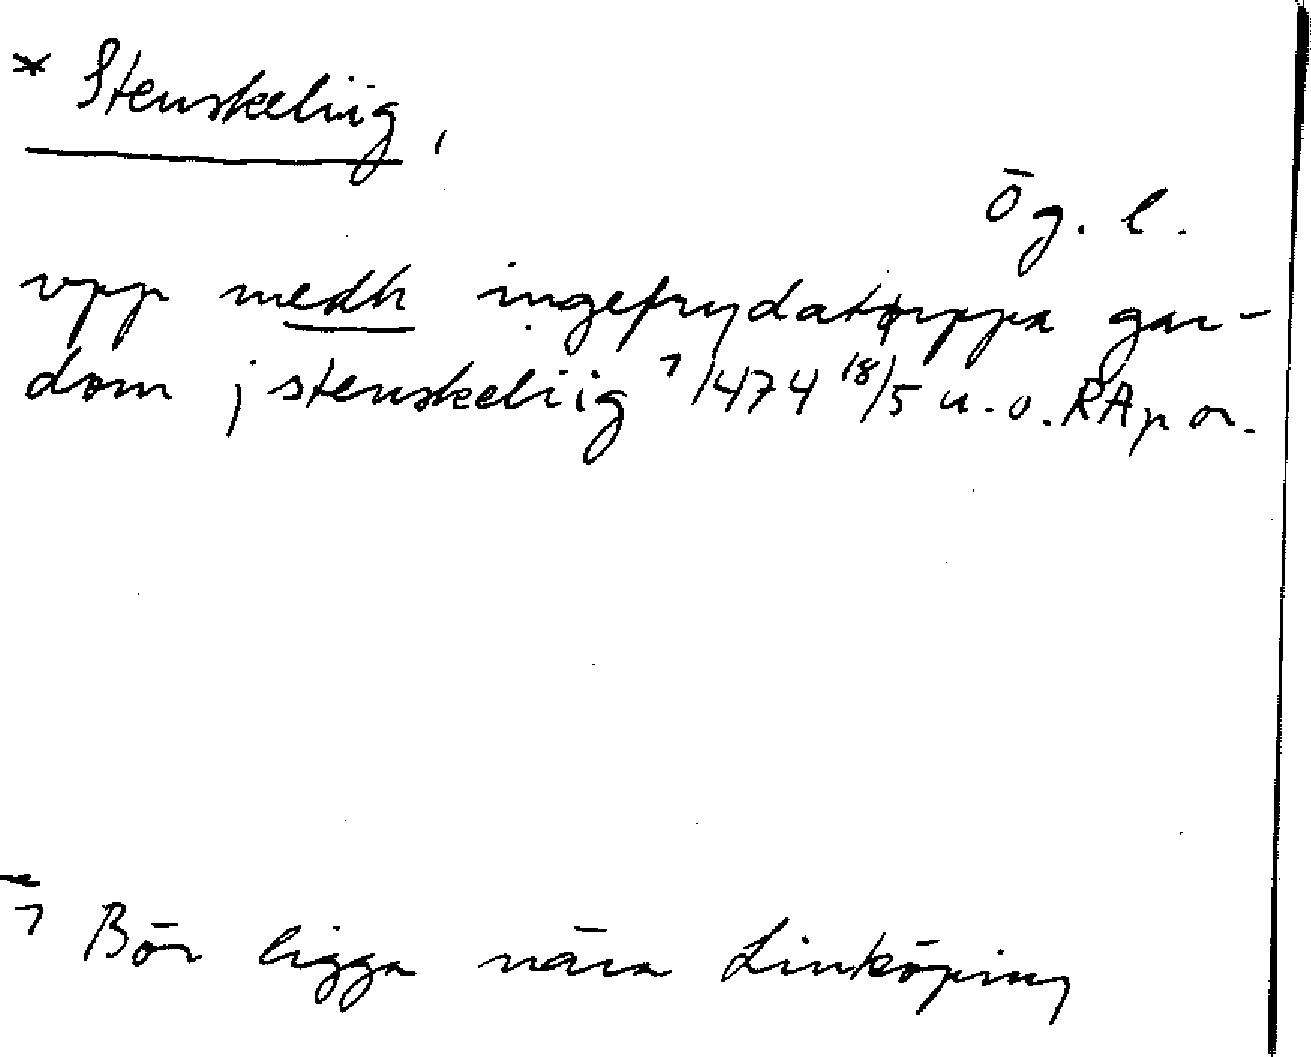 * Stenskeliig,
Ög. l.
vpp medh ingefrydatorppa gar-
dom j stenskeliig ⁊ 1474 18/5 u. o. RAp or.
⁊ Bör ligga nära Linköping